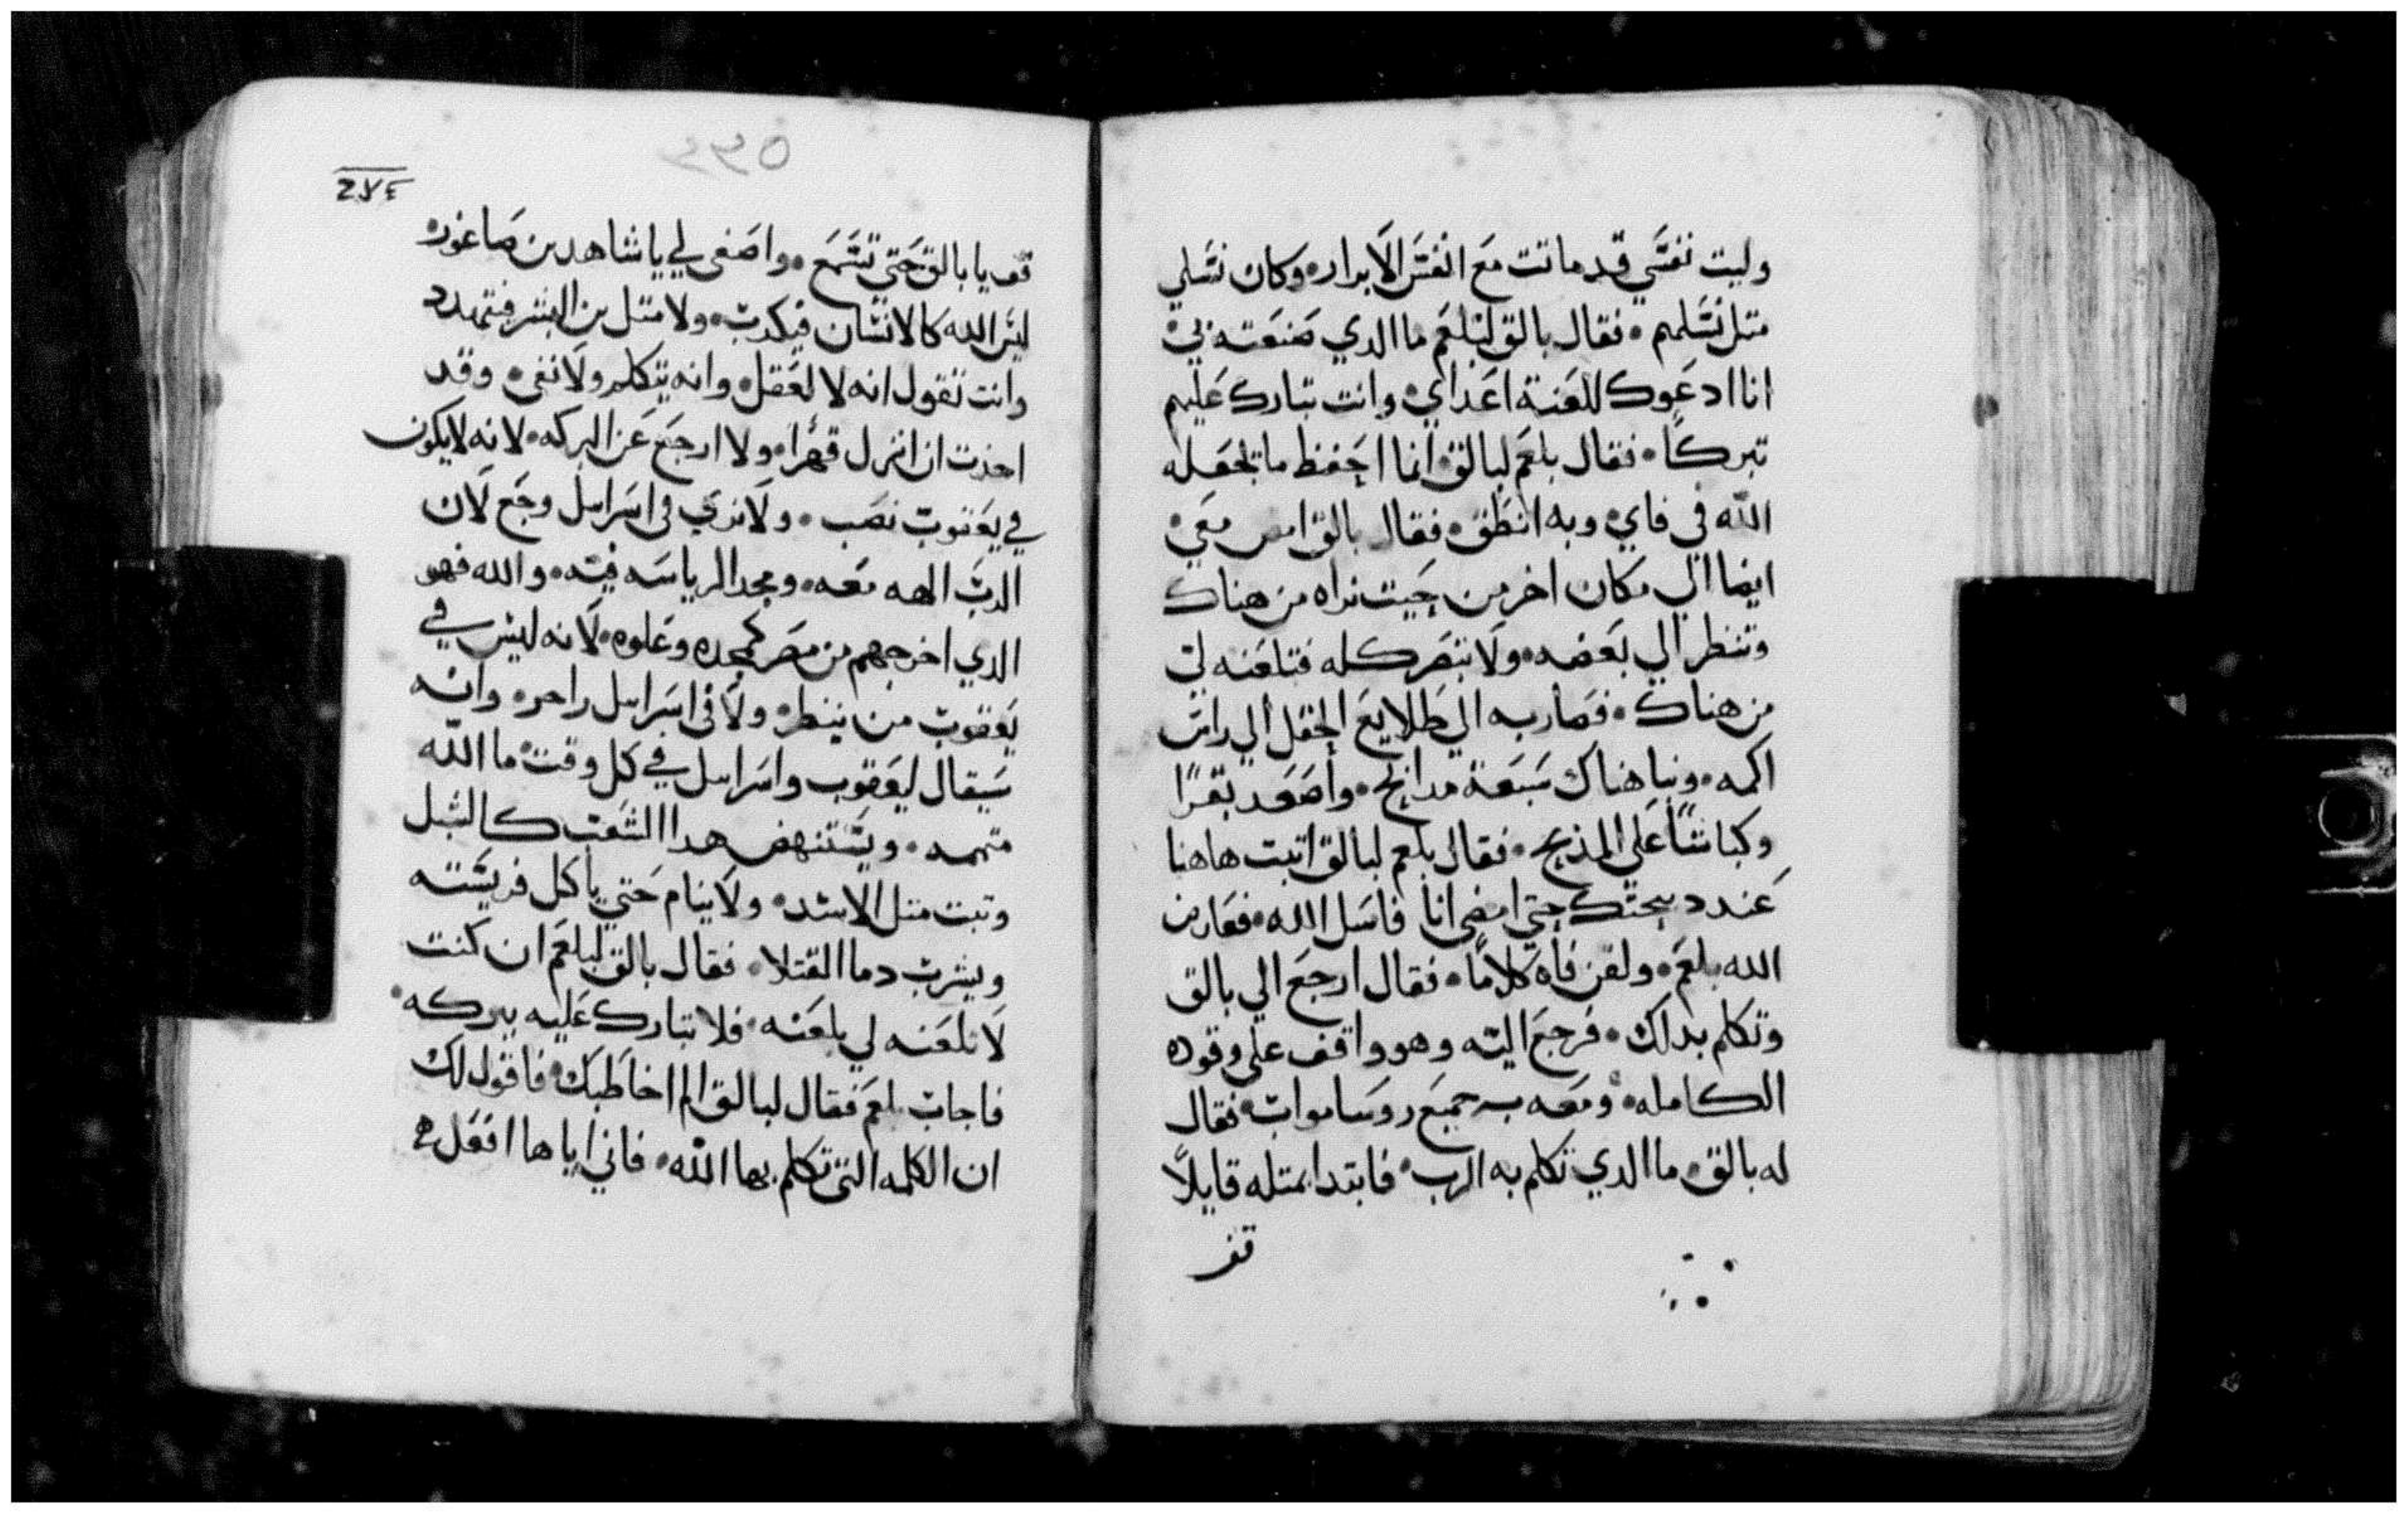 وليت نفسي قد ماتت مع انفس الابرار۰ وكان نسلي
متل نسلهم۰ فقال بالق لبلعم ما الدي صنعته بي۰
انا ادعوك للعنة اعداي۰ وانت تبارك عليهم
تبركا۰ فقال بلعم لبالق۰ انما احفظ ما يجعله
الله في فاي۰ وبه انطق۰ فقال بالق امض معي۰
ايضا الي مكان اخر من حيت نراه من هناك
وتنظر الي بعضه۰ ولا تبصر كله فتلعنه لي
من هناك۰ فصار به الي طلايع الحقل الي راس
اكمه۰ وبنا هناك سبعة مدابح۰ واصعد بقرًا
وكباشًا علي المذبح۰ فقال بلعم لبالق اتبت هاهنا
عند دبيحتك حتي امضي انا فاسل الله۰ فعارض
الله بلعم۰ ولقن فاه كلامًا۰ فقال ارجع الي بالق
وتكلم بداك۰ فرجع اليه وهو واقف علي وقوده
الكامله۰ ومعه جميع روسا مواب۰ فقال
له بالق۰ ما الدي تكلم به الرب۰ فابتدا بمتله قايلاً
قف
٥٣٣
٢٧٤
قف يا بالق حتي تسمع۰ واصغي لي يا شاهد بن صاغور۰
ليس الله كالانسان فيكدب۰ ولا متل بن البشر فيتهدد
وانت تقول انه لا لعقل۰ وانه يتكلم ولا نفي۰ وقد
احذت ان انزل قهرا۰ ولا ارجع عن البركه۰ لانه لا يكون
في يعقوب نصب۰ ولا نري في اسراييل وجع لان
الرب الهه معه۰ ومجد الرياسه فيه۰ والله فهو
الدي اخرجهم من مصر كمجده وعلوه۰ لانه ليس في
يعقوب من ينطر۰ ولا في اسراييل راحر۰ وانه
سيقال ليعقوب واسراييل في كل وقت۰ ما الله
متممه۰ ويستنهض هدا الشعب كالشبل
وتبت متل الاسد۰ ولا ينام حتي ياكل فريسته
ويشرب دما القتلا۰ فقال بالق لبلعم ان كنت
لا تلعنه لي بلعنه۰ فلا تبارك عليه ببركه۰
فاجاب بلعم فقال لبالق الم اخاطبك۰ فاقول لك
ان الكلمه التي تكلم بها الله۰ فاني اياها افعل ه